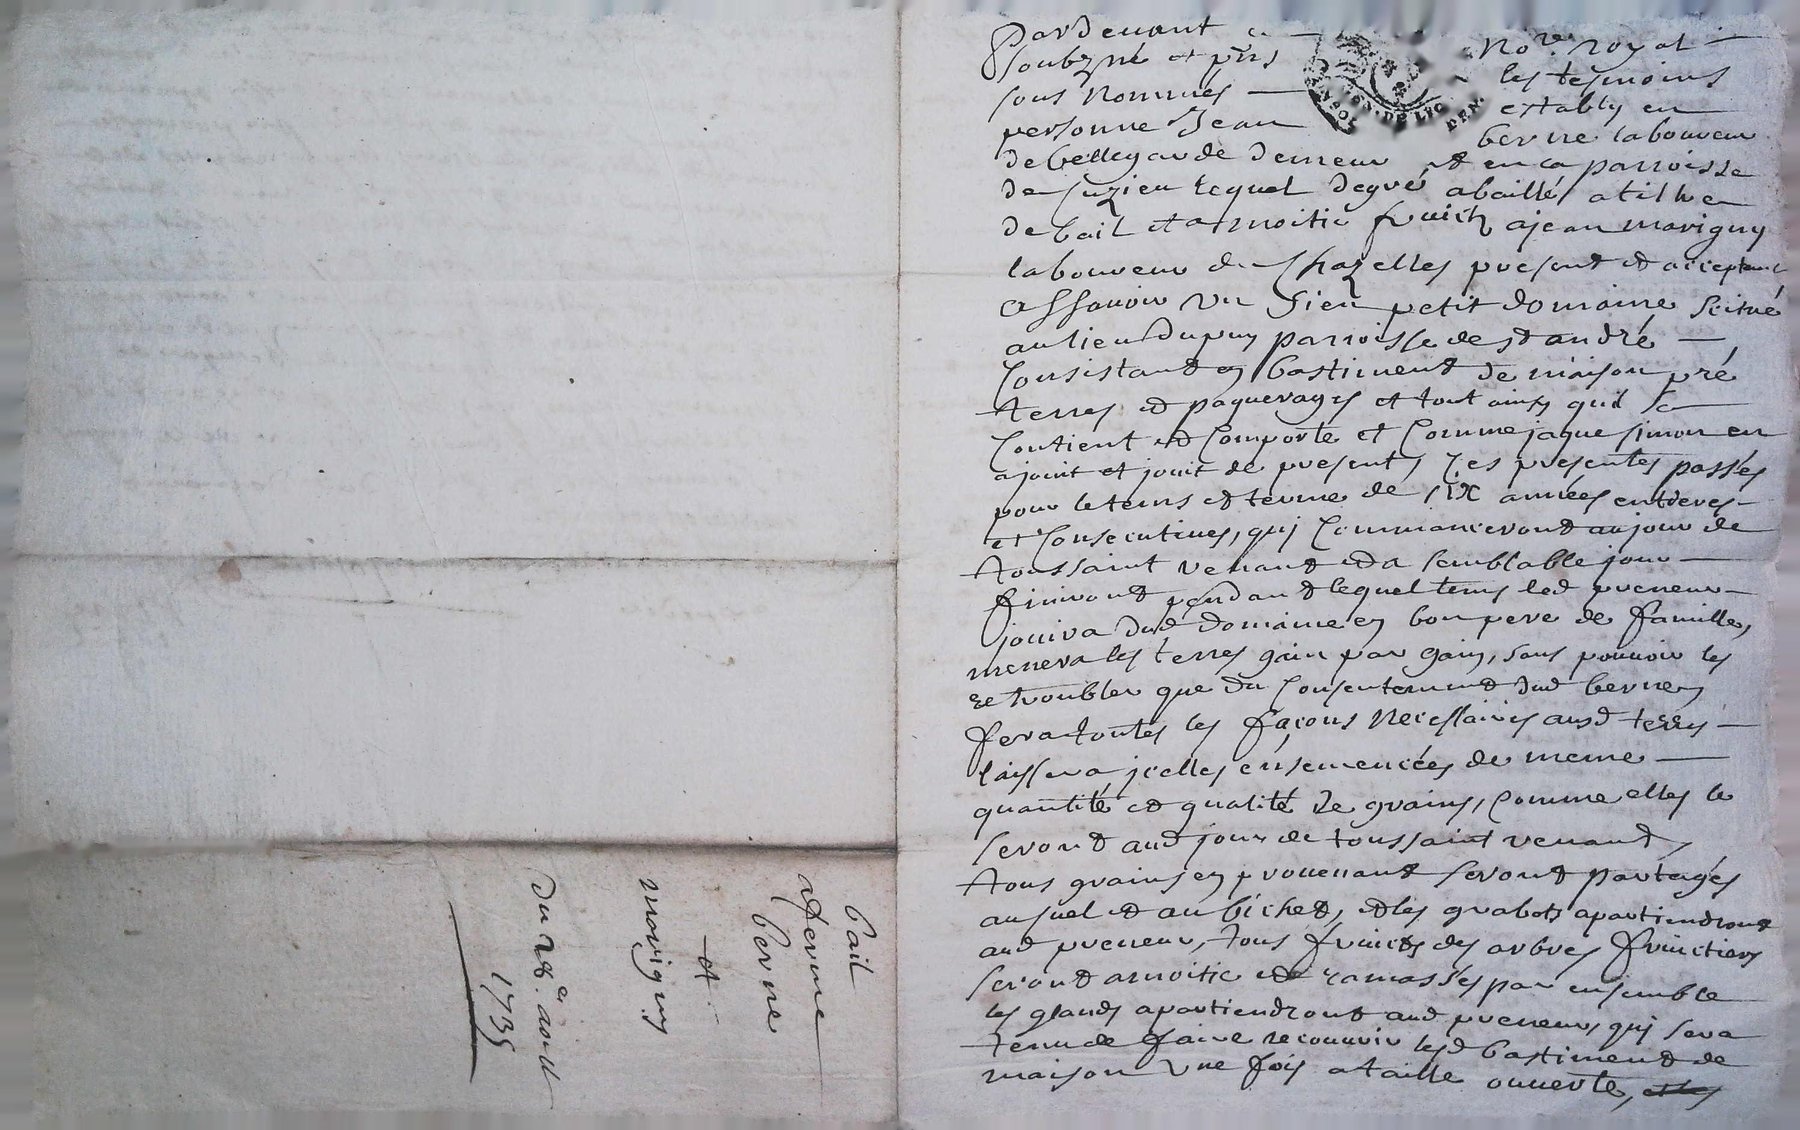 Pardevant le No.re royal
soubzné et p̃ns les tesmoins
sous nommés establi en
personne Jean berne laboureur
de bellegarde demeurant en la parroisse
de suzieu lequel degré a baillé a tiltre
de bail et a moitié fruicts a jean marigny
laboureur de Chazelles present et acceptant
assavoir un sien petit domaine scitué
au lieu du puy parroisse de st andré
Consistant en bastiment de maison pré
terres et paquerages et tout ainsy quil se
Contient et Comporte et Comme jaque simon en
a jouit et jouit de present, Ces presentes passés
pour le tems et terme de six années entieres
et Consecutives, qui Commanceront au jour de
toussaint venant et a semblable jour
finiront pendant lequel tems led preneur
jouira dud domaine en bon pere de famille,
menera les terres gain par gain, sans pouvoir les
retroubler que du Consentement dud berne,
fera toutes les façons necessaires ausd terres
laissera jcelles ensemencées de meme
quantité et qualité de grains, Comme elles le
seront aud jour de toussaint venant,
tous grains en provenant seront partagés
au suel et au bichet, et les grabots apartiendront
aud preneur, tous fruicts des arbres fruictiers
seront a moitié et ramassés par ensemble
les glands apartiendront aud preneur, qui sera
tenu de faire recouvrir lesd bastiment de
maison une fois a taille ouverte,
bail
a ferme
berne
et
marigny
Du 28.e aout
1735